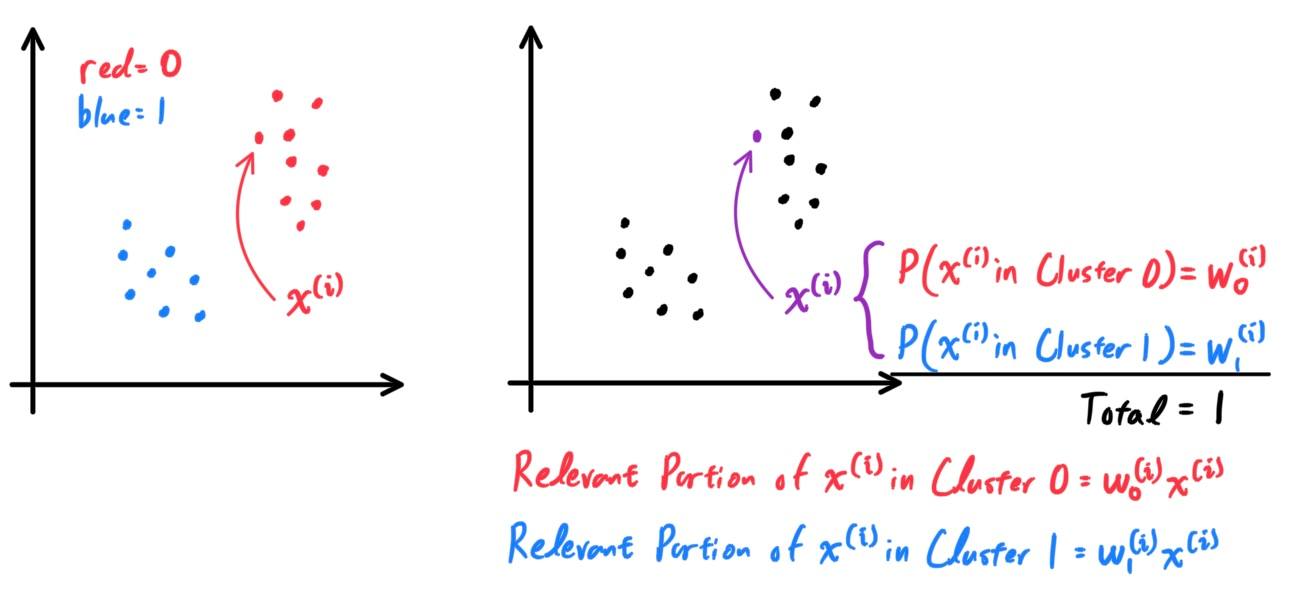 red= 0
blue= 1
x^(i)
x^(i)
P(x^(i) in Cluster 0)= w_0^(i)
P(x^(i) in Cluster 1)= w_1^(i)
Total = 1
Relevant Portion of x^(i) in Cluster 0 = w_0^(i) x^(i)
Relevant Portion of x^(i) in Cluster 1 = w_1^(i) x^(i)